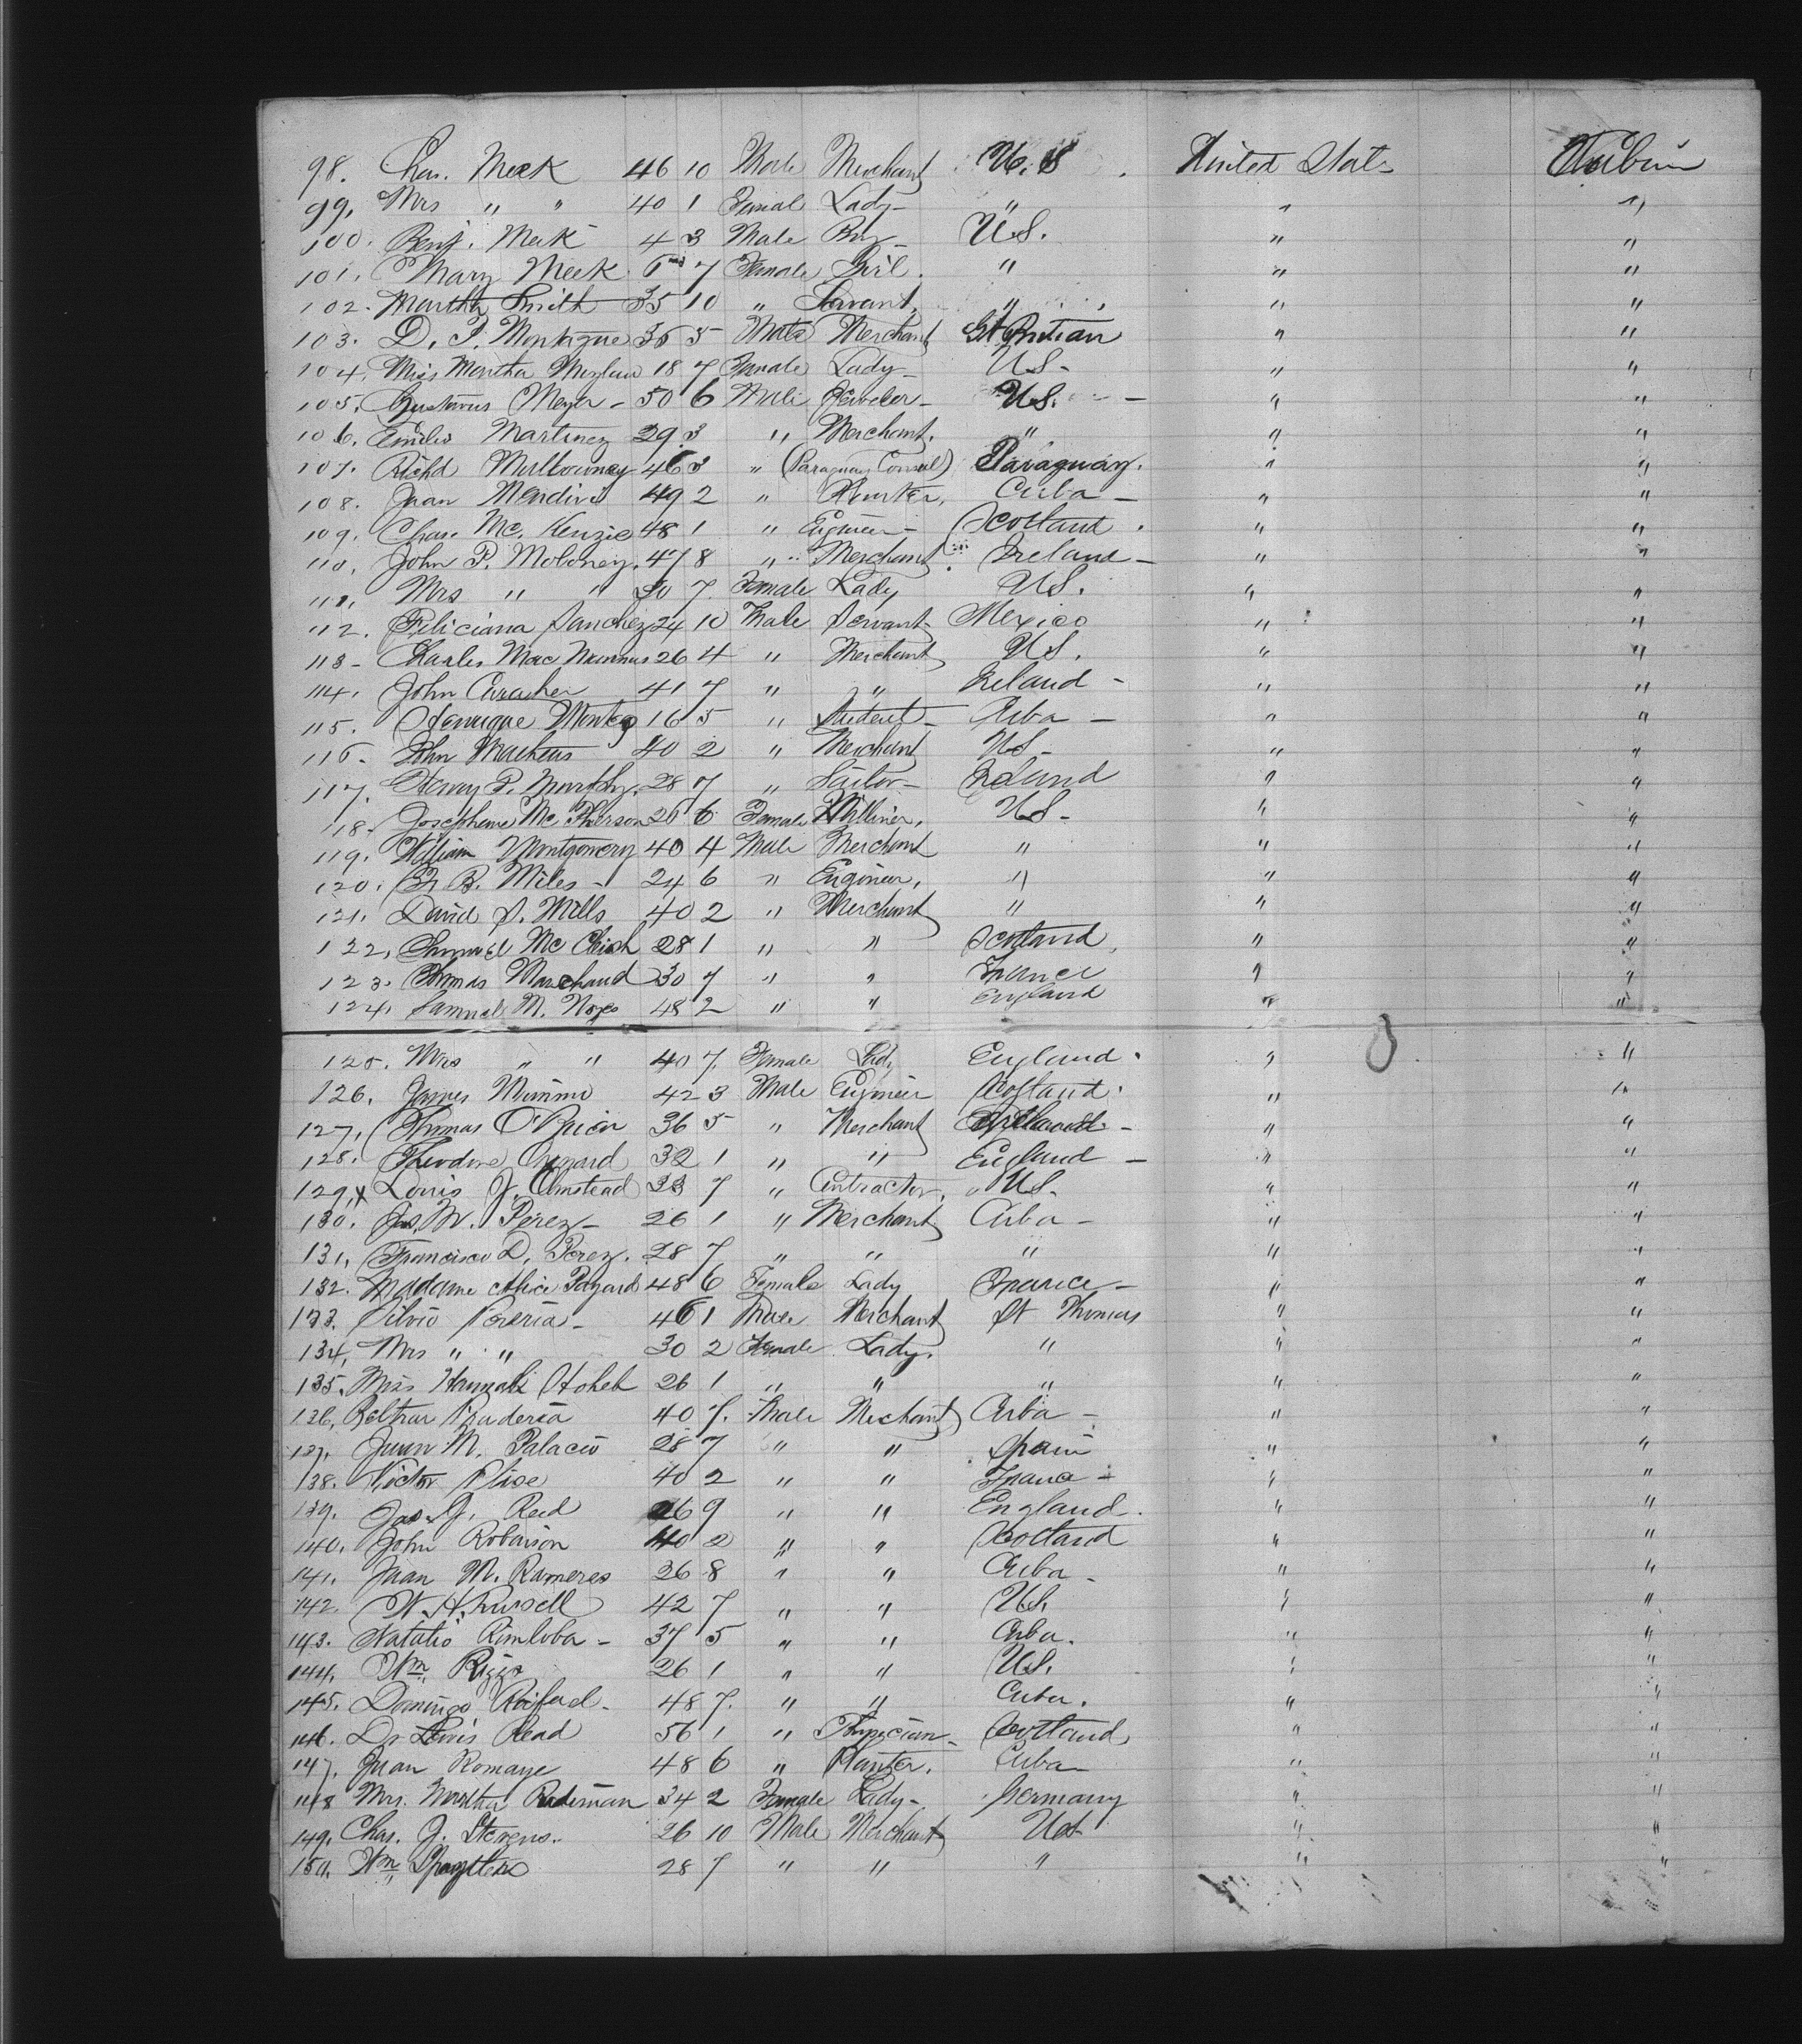 98. Chas. Meek 46 10 Male Merchant U.S. United Stats Cabin
99. Mrs " " 40 1 Femal Lady " " "
100. Benj. Meek 4 3 Male Boy U.S. " "
101. Mary Meek 7 Female Girl. " " "
102. Martha Smith 35 10 " Servant, " " "
103. D. P. Montague 36 5 Male Merchant Gt Britian " "
104. Miss Martha 18 7 Female Lady U.S. " "
105. Gustavus Meyer 50 6 Male Jeweler U.S. " "
106. Emilio Martinez 29 3 " Merchant. " " "
107. Richd Mullowney 46 3 " (Paraguay Consul) Paraguay. " "
108. Juan Mendive 49 2 " Planter, Cuba " "
109. Chas. Mc. Kenzie 48 1 " Engineer Scotland " "
110. John P. Moloney. 47 8 " Merchant Ireland " "
111. Mrs " " 30 7 Female Lady U.S. " "
112. Feliciana Sanchez 24 10 Male Servant Mexico " "
113 Charles Mac Manus 26 4 " Merchant U.S. " "
114. John 41 7 " " Ireland " "
115. Henrique 16 5 " Student Cuba " "
116. John Matheus 40 2 " Merchant U.S. " "
117. Henry P. Murphy. 28 7 " Sailor Ireland " "
118. Josephene Mc Pherson 26 6 Female Milliner, U.S. " "
119. William Montgomery 40 4 Male Merchant " " "
120. B. Miles 24 6 " Engineer, " " "
121. David S. Mills 40 2 " Merchant " " "
122, Samuel Mc 28 1 " " Scotland, " "
123. Thomas Marchand 30 7 " " France " "
124. Samuel M. Noyes 48 2 " " England " "
125. Mrs " " 40 7. Female Lady England. " "
126. James 42 3 Male Engineer Scotland. " "
127, Thomas O'Brien 36 5 " Merchant " "
128. Theodore 32 1 " " England " "
129, x Louis J. Olmstead 33 7 " Contractor, U.S. " "
130. Jas. M. Perez 26 1 " Merchant Cuba " "
131, Francisco D. Perez. 28 7 " " " " "
132. Madame Alice 48 6 Female Lady France " "
133. Silvio Pereria 46 1 Male Merchant St Thomas " "
134, Mrs " " 30 2 Female Lady. " " "
135. Miss Hannah 26 1 " " " " "
136, 40 7. Male Merchant Cuba " "
137, Juan M. Palacio 28 7 " " Spain " "
138. Victor 40 2 " " France " "
139. Jas. J. Reed 26 9 " " England. " "
140. John Robinson 40 2 " " Scotland " "
141, Juan M. Rameres 26 8 " " Cuba " "
142. W. H. Russell 42 7 " " U.S. " "
143. Natalio 37 5 " " Cuba. " "
144, Wm 26 1 " " U.S. " "
145. Domingo 48 7. " " Cuba. " "
146. Dr Lewis Read 56 1 " Physician Scotland, " "
147, Juan Romaye 48 6 " Planter. Cuba " "
148 Mrs. Martha Rademan 34 2 Female Lady Germany " "
149, Chas. J. Stevens. 26 10 Male Merchant U.S. " "
150, Wm 28 7 " " " " "